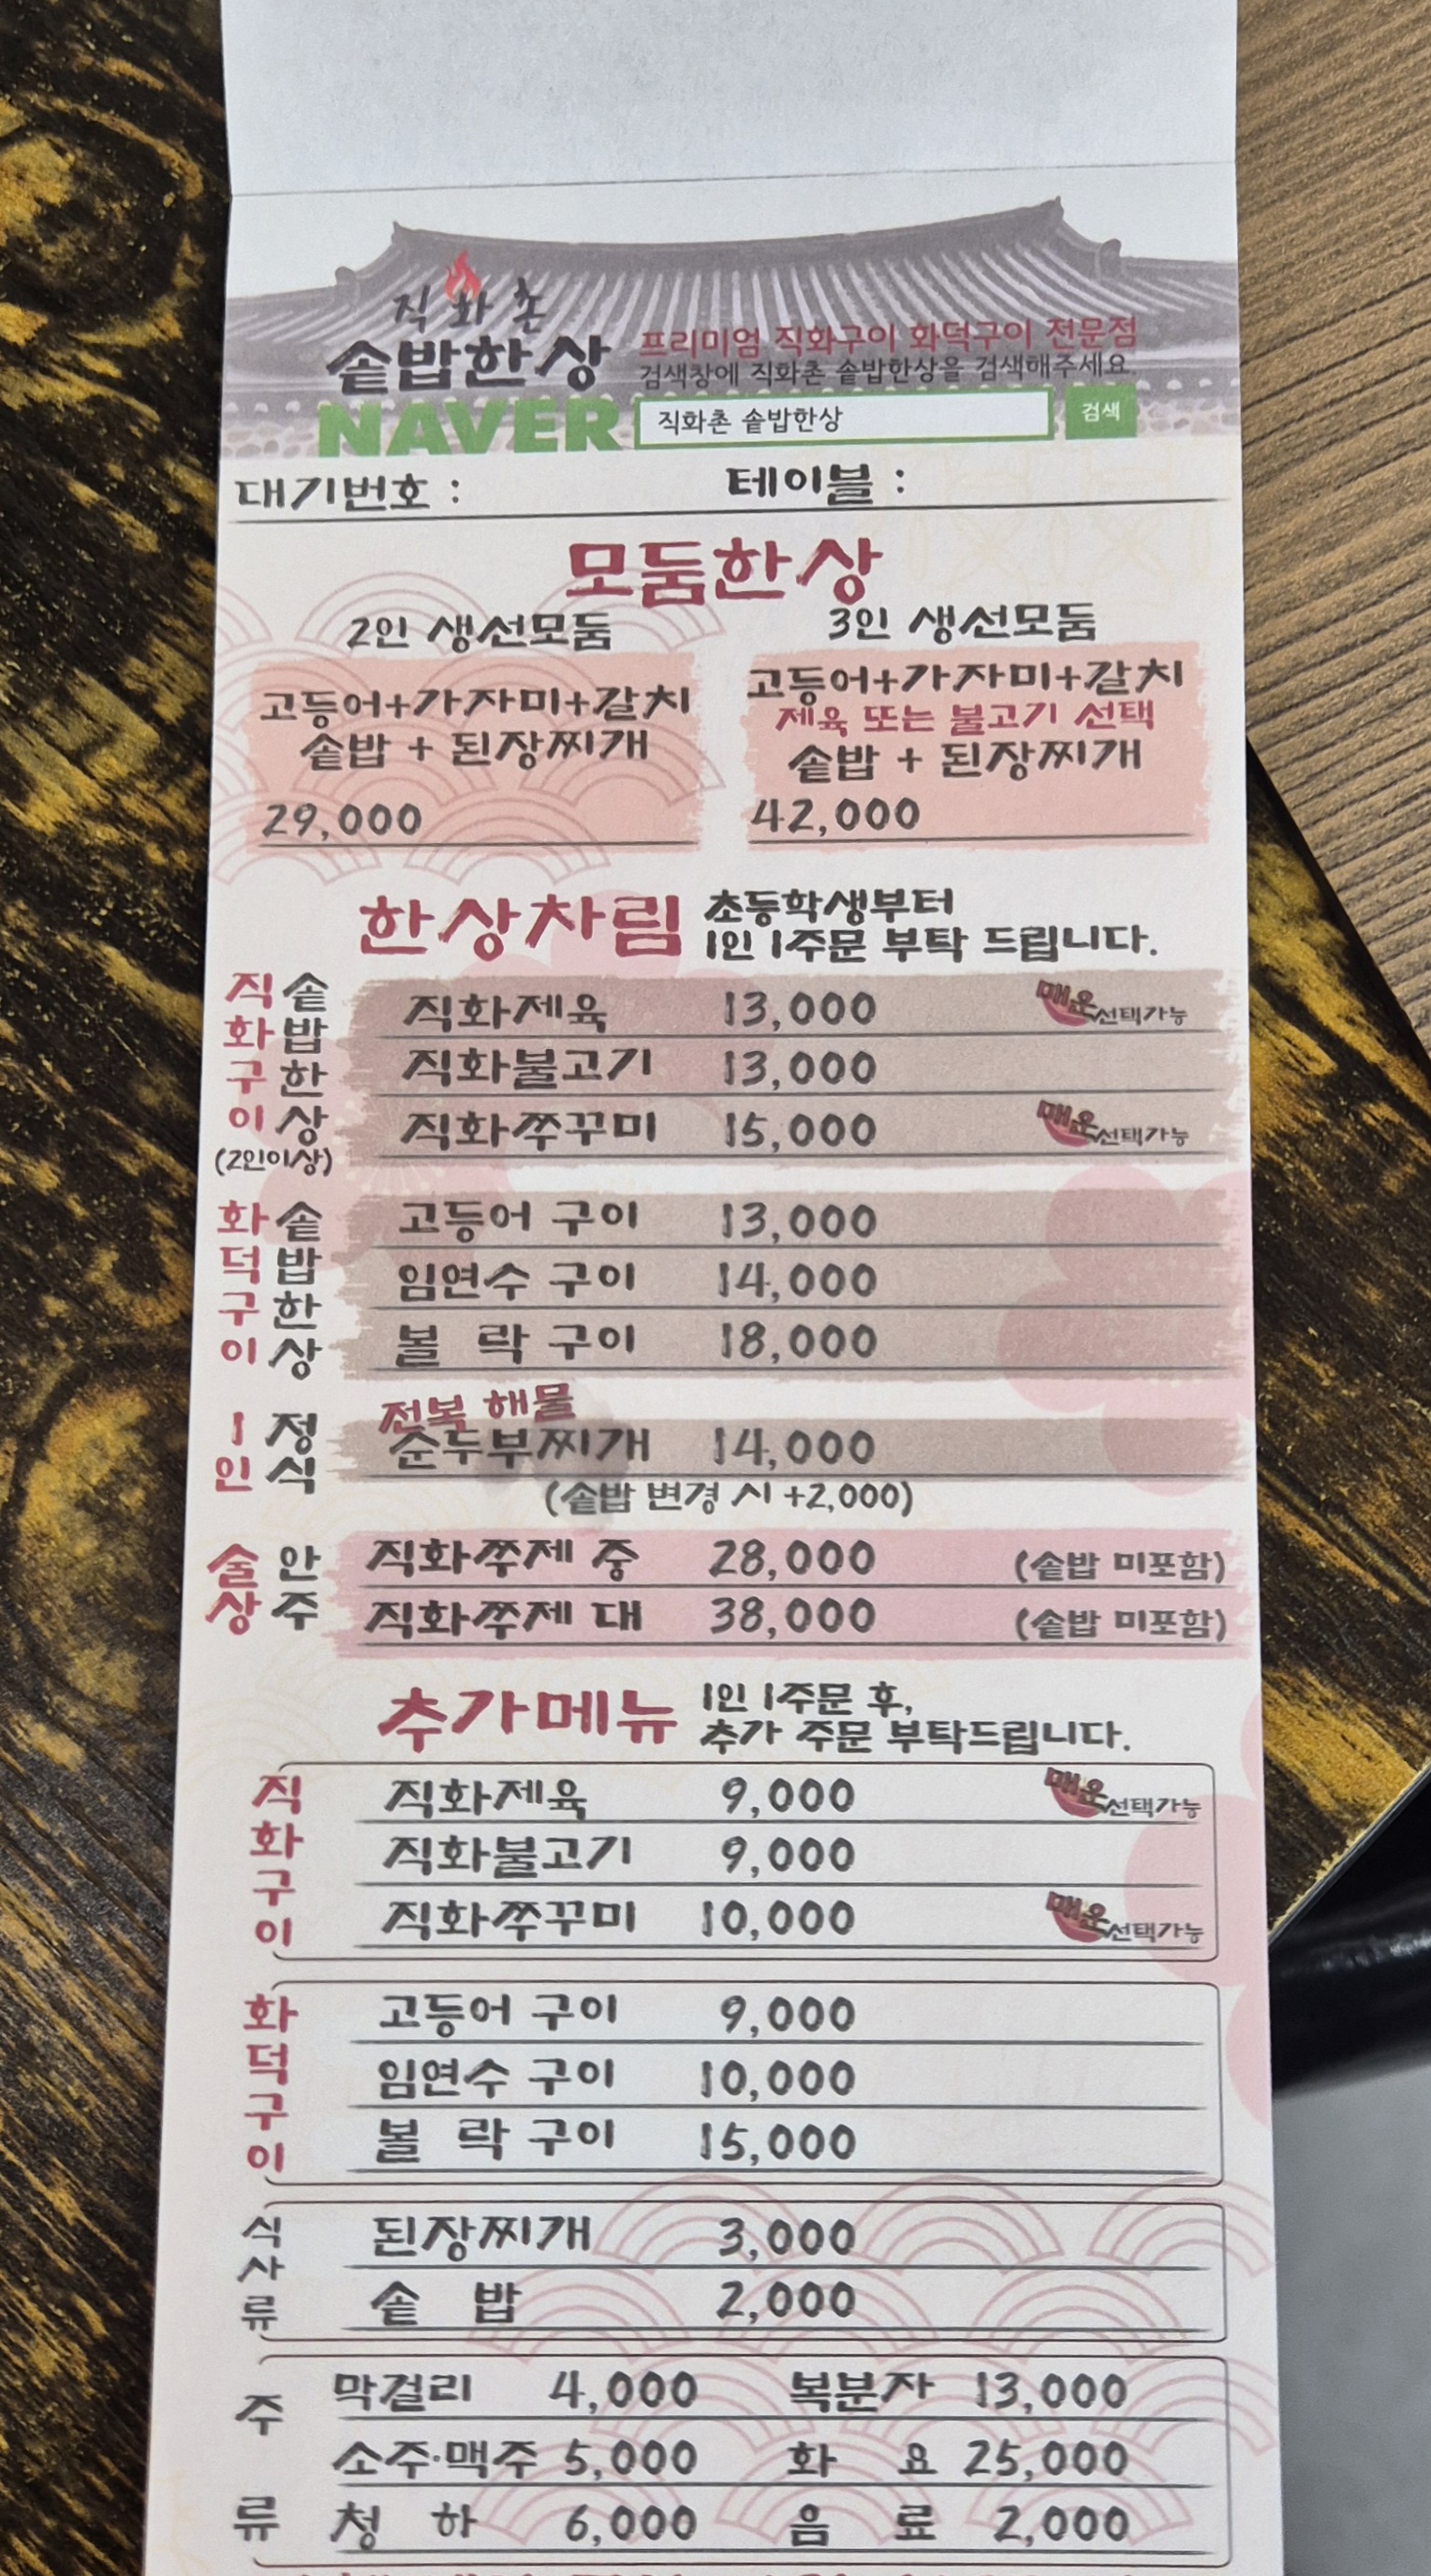 직화촌
솥밥한상
프리미엄 직화구이 화덕구이 전문점
검색창에 직화촌 솥밥한상을 검색해주세요.
NAVER 직화촌 솥밥한상 검색
대기번호 : 테이블 :
모둠한상
2인 생선모둠
고등어+가자미+갈치
솥밥 + 된장찌개
29,000
3인 생선모둠
고등어+가자미+갈치
제육 또는 불고기 선택
솥밥 + 된장찌개
42,000
한상차림
초등학생부터
1인 1주문 부탁 드립니다.
직화구이 솥밥한상
(2인이상)
직화제육 13,000 매운 선택가능
직화불고기 13,000
직화쭈꾸미 15,000 매운 선택가능
화덕구이 솥밥한상
고등어 구이 13,000
임연수 구이 14,000
볼 락 구이 18,000
1인 정식
전복 해물
순두부찌개 14,000
(솥밥 변경 시 +2,000)
술상 안주
직화쭈제 중 28,000 (솥밥 미포함)
직화쭈제 대 38,000 (솥밥 미포함)
추가메뉴
1인 1주문 후,
추가 주문 부탁드립니다.
직화구이
직화제육 9,000 매운 선택가능
직화불고기 9,000
직화쭈꾸미 10,000 매운 선택가능
화덕구이
고등어 구이 9,000
임연수 구이 10,000
볼 락 구이 15,000
식사류
된장찌개 3,000
솥 밥 2,000
주류
막걸리 4,000 복분자 13,000
소주·맥주 5,000 화 요 25,000
청 하 6,000 음 료 2,000